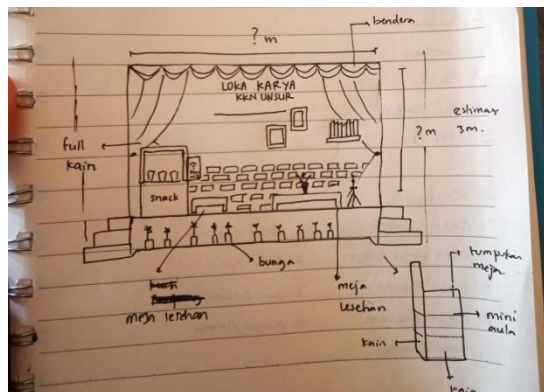 ? m
bendera
LOKA KARYA
KKN UNSUR
full
kain
estimasi
3 m.
? m
snack
bunga
meja lesehan
meja
lesehan
tumpukan
meja
mini
aula
kain
kain